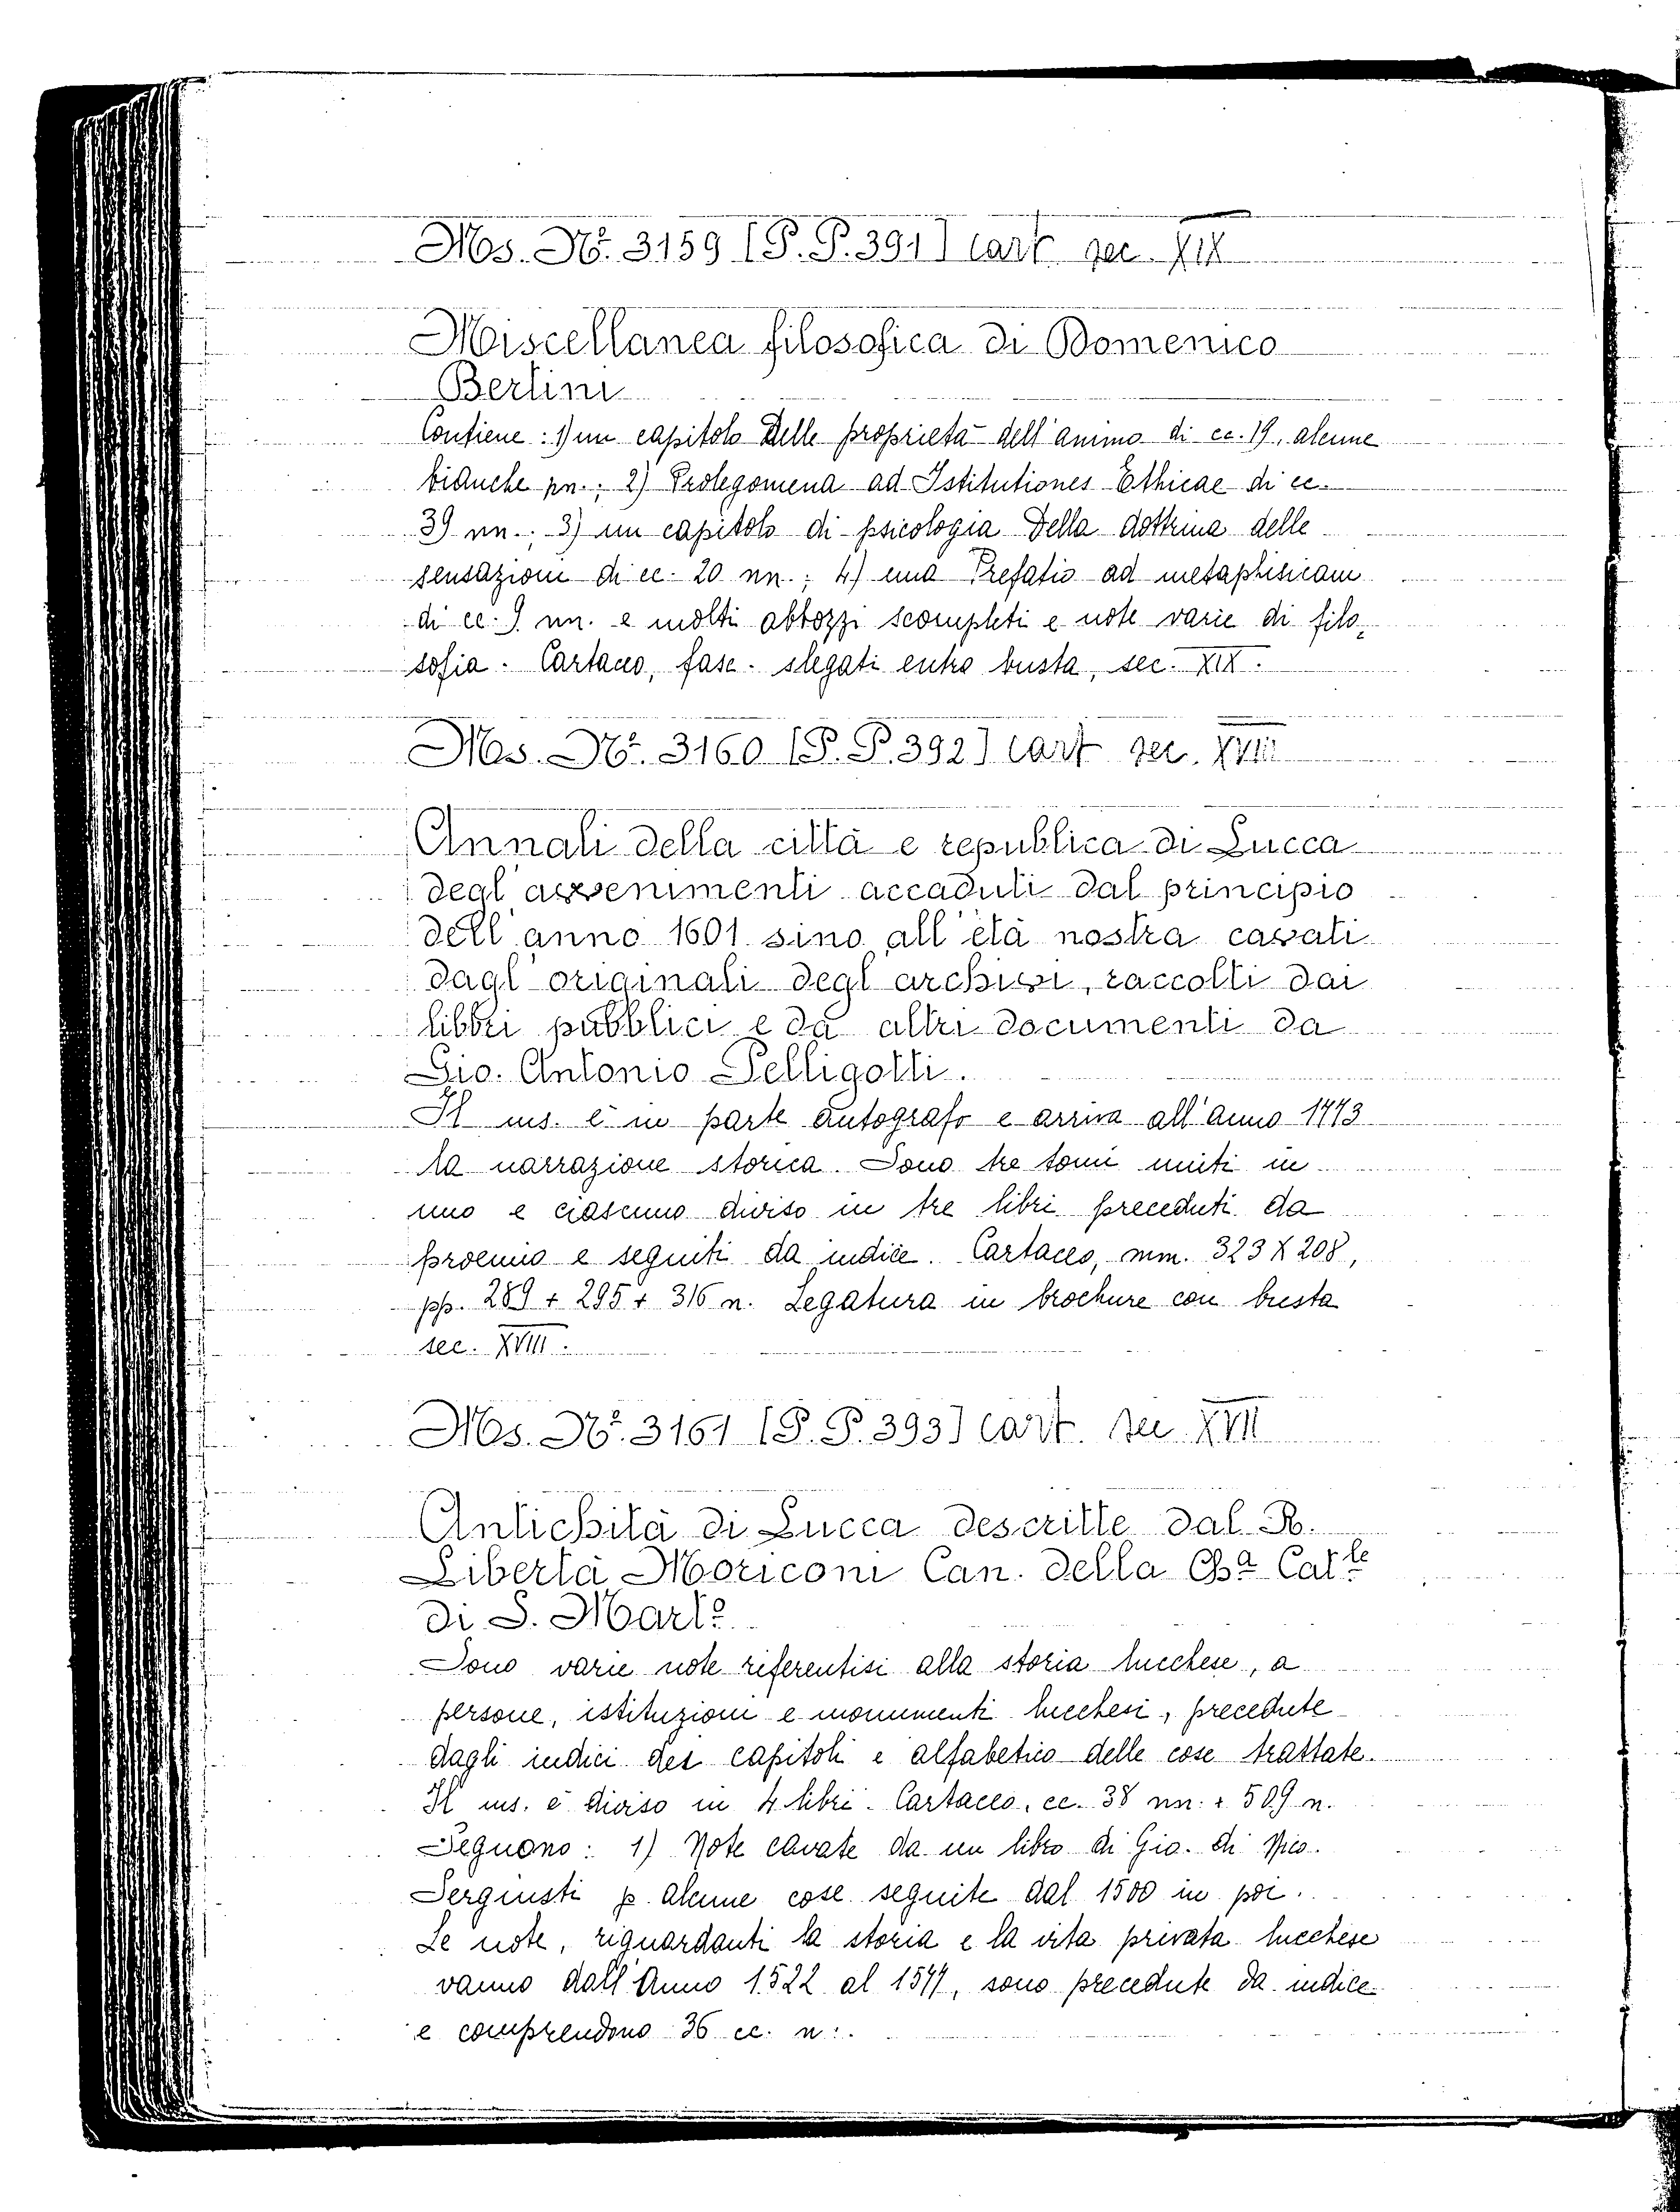 Ms. Nº. 3159 [P. P. 391] cart. sec. XIX
Miscellanea filosofica di Domenico
Bertini
Contiene: 1) un capitolo Delle proprietà dell'animo di cc. 19, alcune
bianche nn.; 2) Prolegomena ad Istitutiones Ethicae di cc.
39 nn.; 3) un capitolo di psicologia Della dottrina delle
sensazioni di cc. 20 nn.; 4) una Prefatio ad metaphisicam
di cc. 9 nn. e molti abbozzi scompleti e note varie di filo-
sofia. Cartaceo, fasc. slegati entro busta, sec. XIX.
Ms. Nº. 3160 [P. P. 392] cart. sec. XVIII
Annali della città e republica di Lucca
degl'avvenimenti accaduti dal principio
dell'anno 1601 sino all'età nostra cavati
dagl'originali degl'archivi, raccolti dai
libbri pubblici e da altri documenti da
Gio. Antonio Pelligotti.
Il ms. è in parte autografo e arriva all'anno 1773
la narrazione storica. Sono tre tomi uniti in
uno e ciascuno diviso in tre libri preceduti da
proemio e seguiti da indice. Cartaceo, mm. 323 X 208,
pp. 289 + 295 + 316 n. Legatura in brochure con busta
sec. XVIII.
Ms. Nº. 3161 [P. P. 393] cart. sec XVII
Antichità di Lucca descritte dal R.
Libertà Moriconi Can. della Chª Catle
di S. Martº.
Sono varie note referentisi alla storia lucchese, a
persone, istituzioni e monumenti lucchesi, precedute
dagli indici dei capitoli e alfabetico delle cose trattate.
Il ms. è diviso in 4 libri. Cartaceo, cc. 38 nn. + 509 n.
Seguono: 1) Note cavate da un libro di Gio. di Nico.
Sergiusti p. alcune cose seguite dal 1500 in poi.
Le note, riguardanti la storia e la vita privata lucchese
vanno dall'Anno 1522 al 1577, sono precedute da indice
e comprendono 36 cc. n.